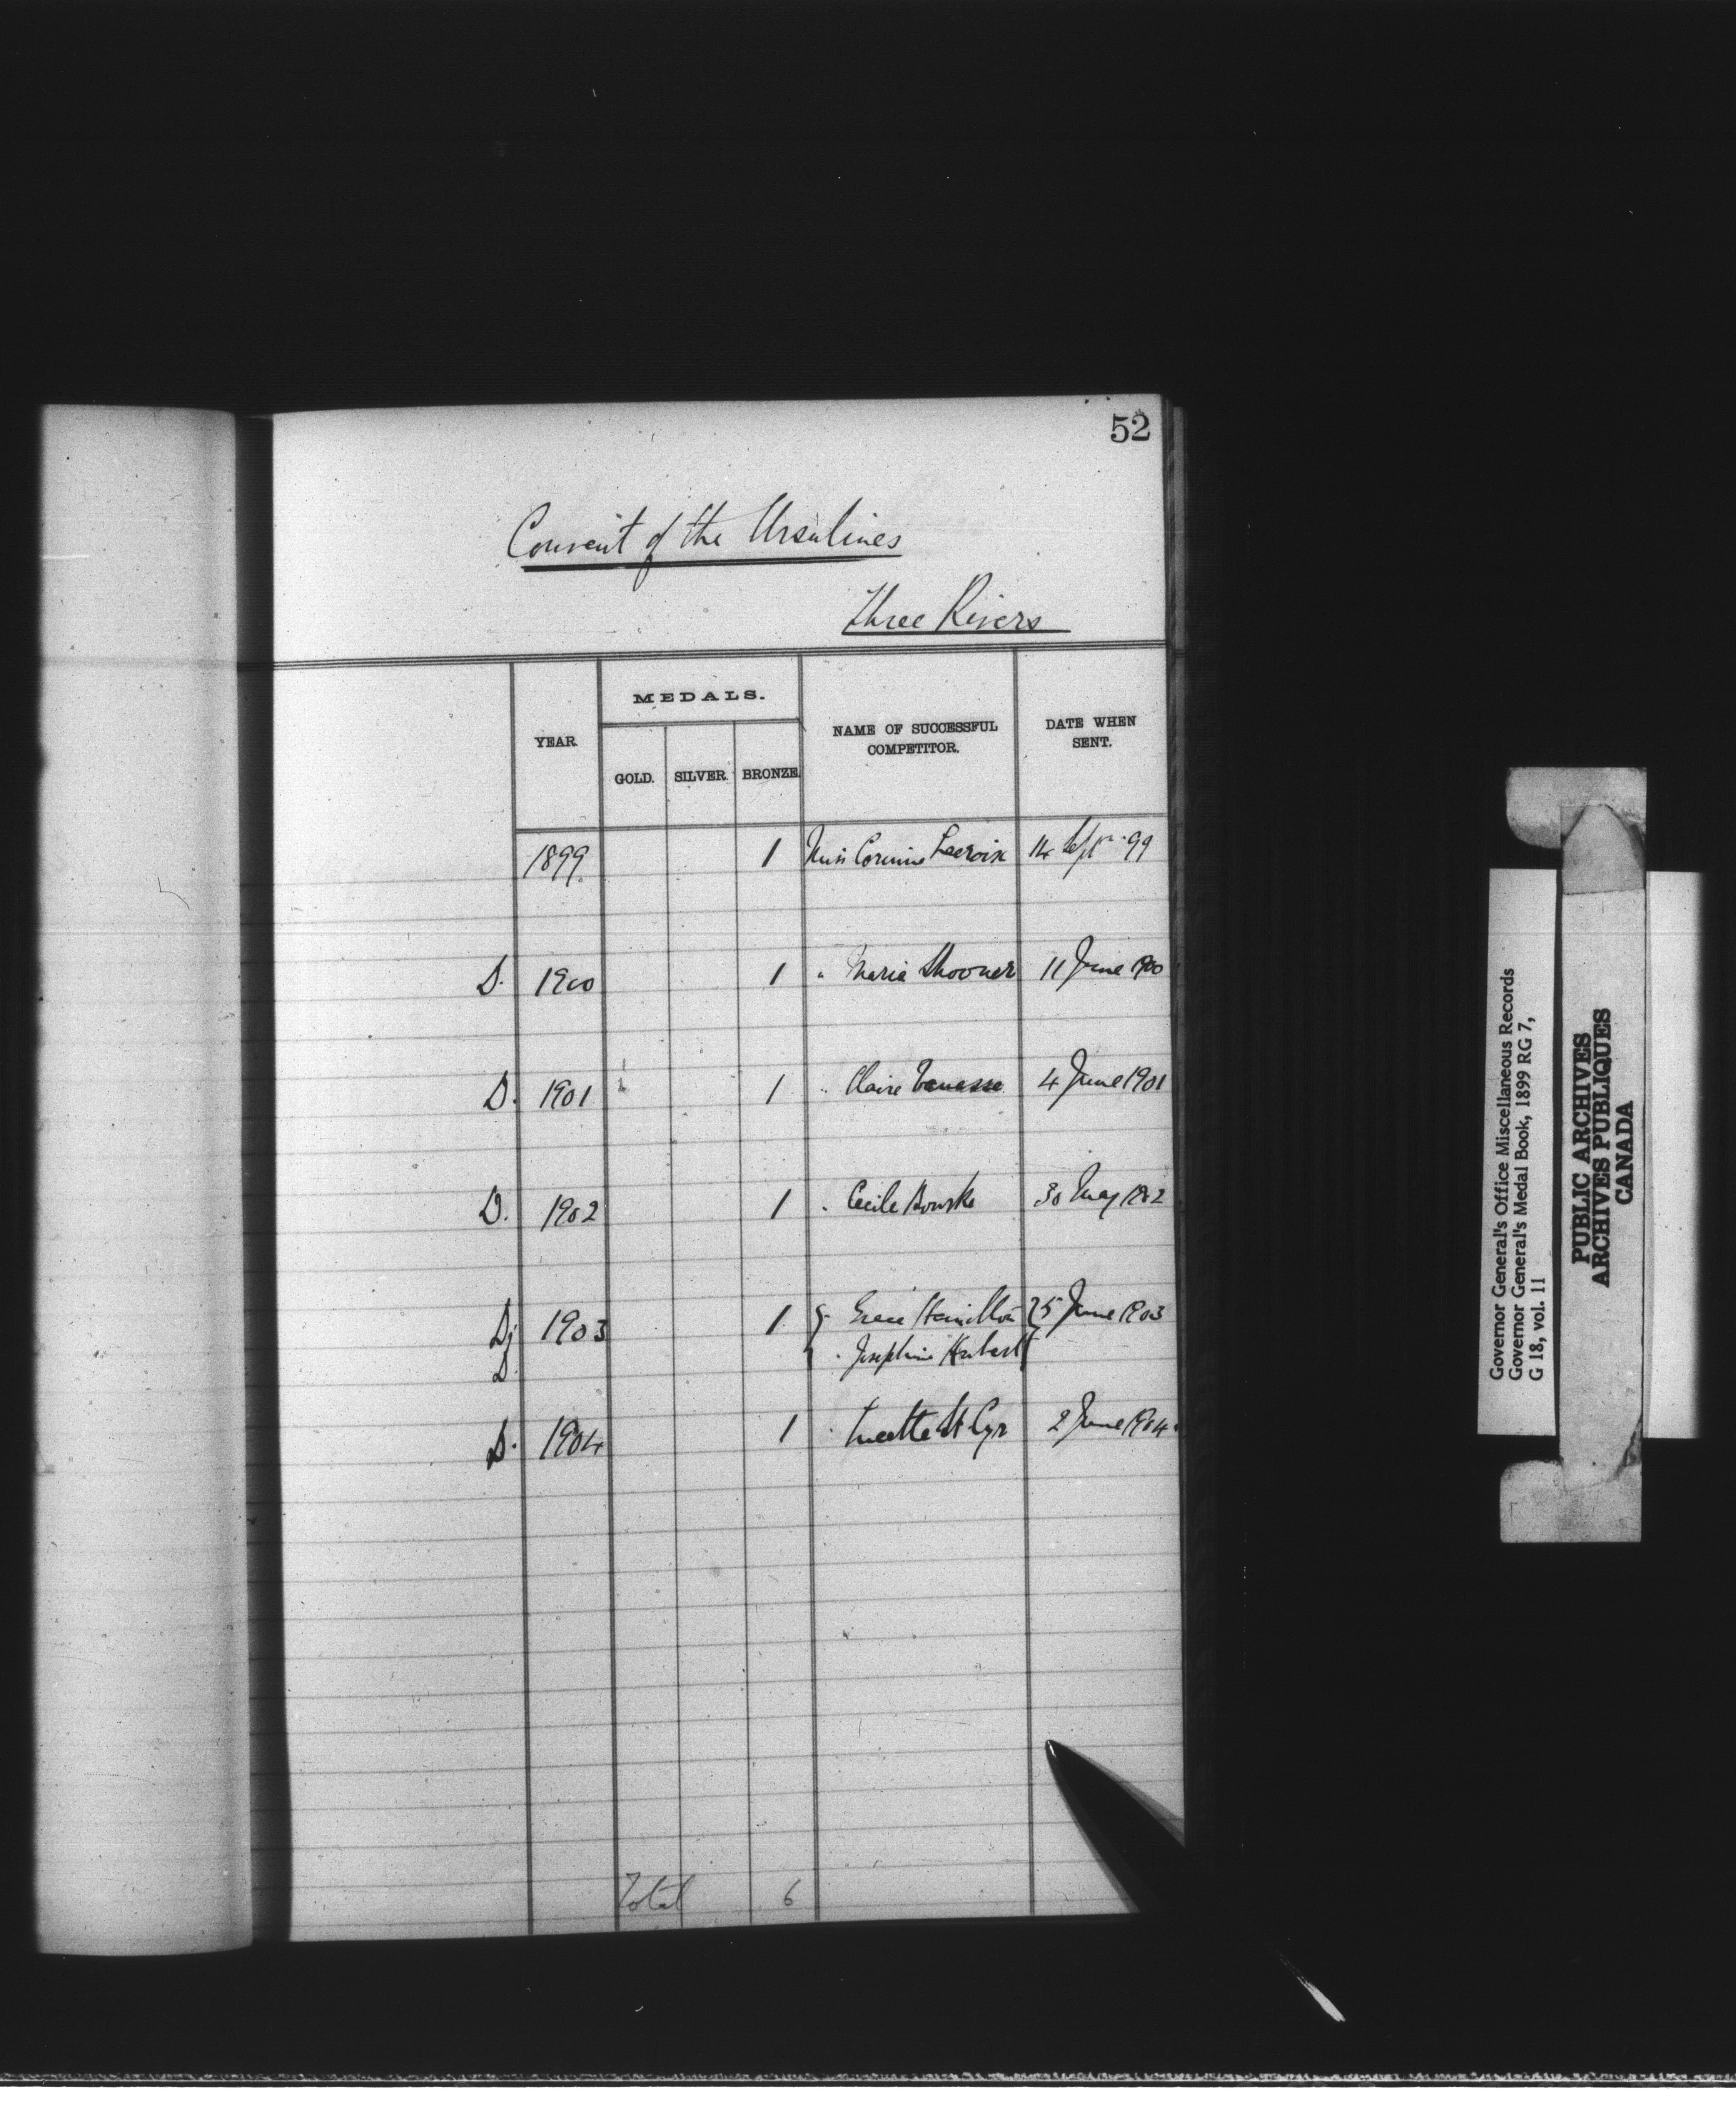 52
Convent of the Ursulines
Three Rivers
MEDALS.
YEAR. GOLD. SILVER. BRONZE. NAME OF SUCCESSFUL COMPETITOR. DATE WHEN SENT.
1899. 1 Miss Corinne Lacroix 14 Sept. 99
D. 1900 1 " Maria Shooner 11 June 1900
D. 1901 1 " Claire Vanasse 4 June 1901
D. 1902 1 " Cecile Bourke 30 May 1902
D. 1903 1 { " Grace Hamilton } 5 June 1903
D. " Josephine Hubert
D. 1904 1 " Lucette St Cyr 2 June 1904.
Total 6
Governor General's Office Miscellaneous Records
Governor General's Medal Book, 1899 RG 7,
G 18, vol. 11
PUBLIC ARCHIVES
ARCHIVES PUBLIQUES
CANADA